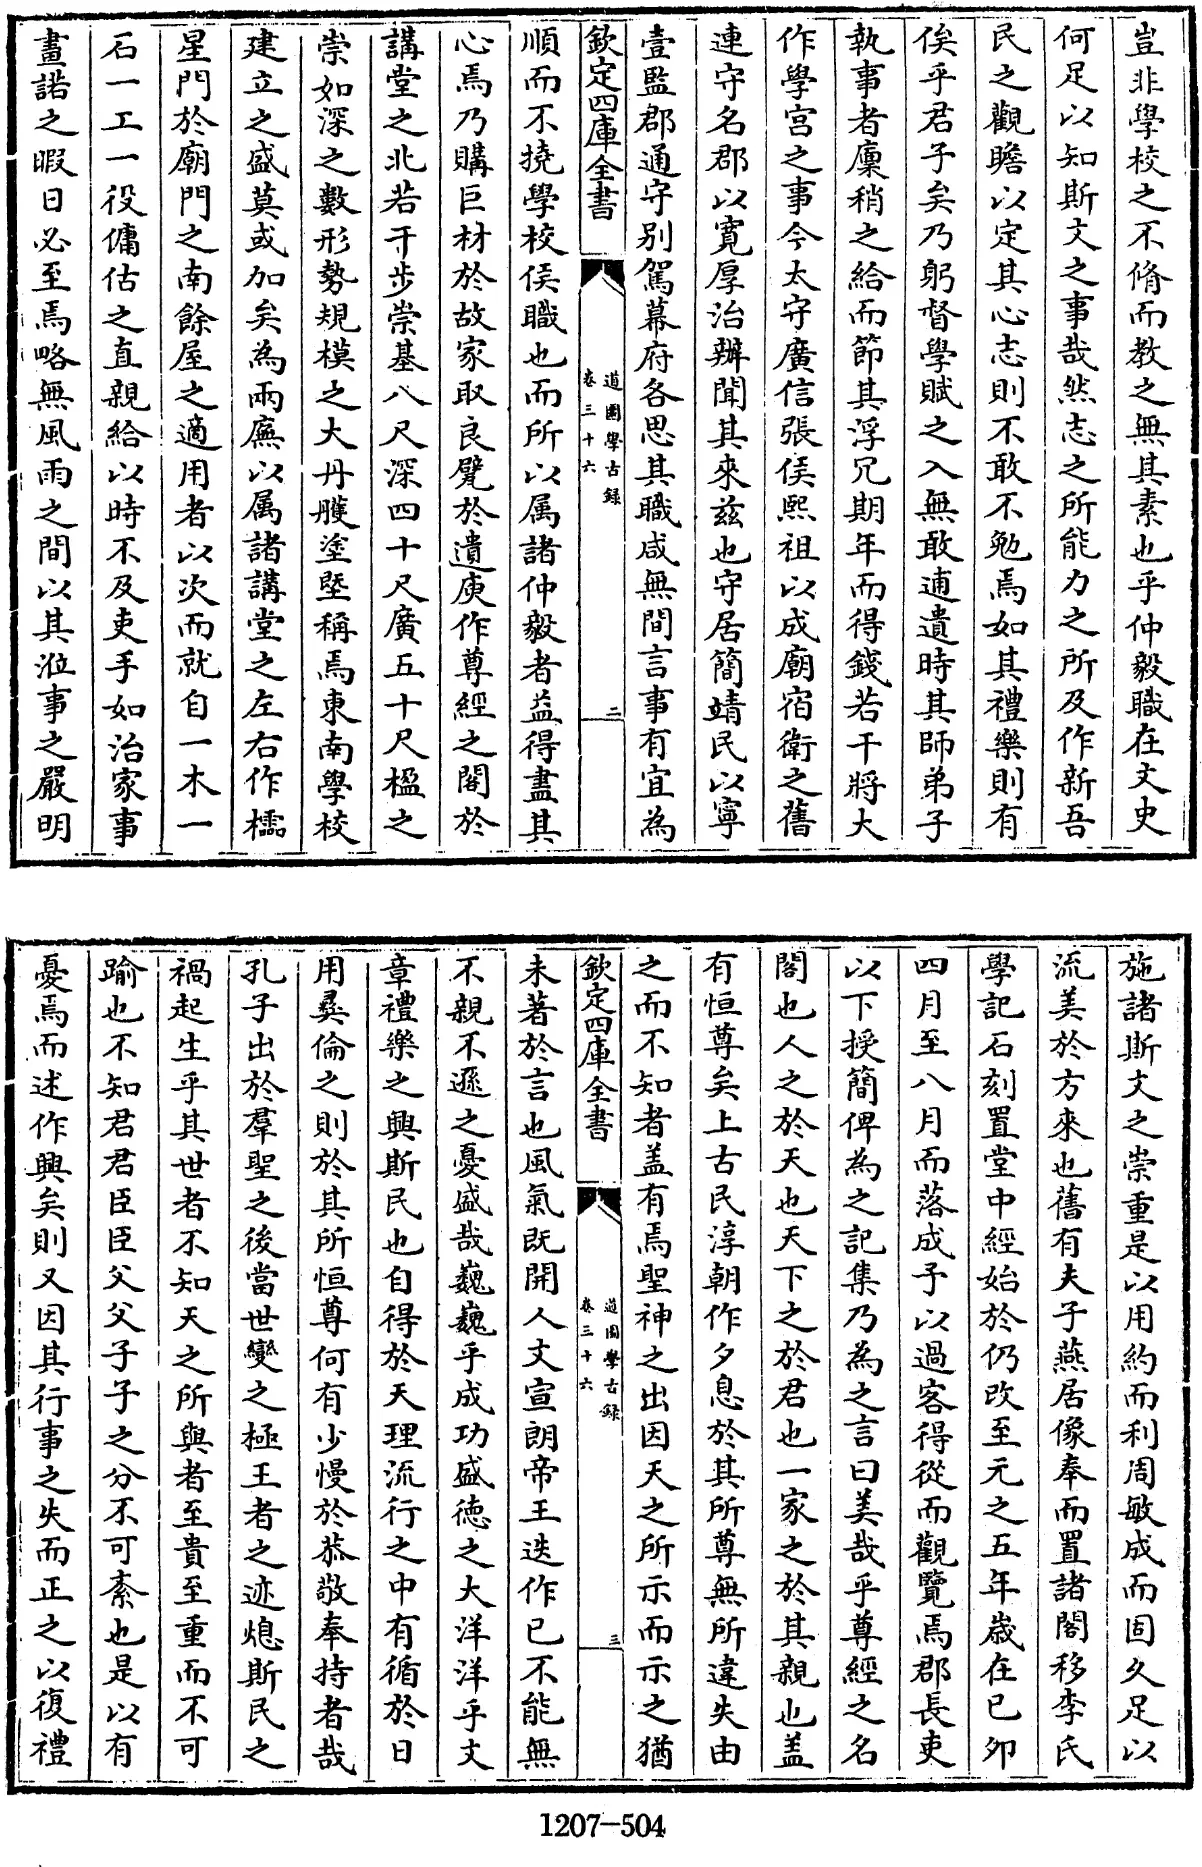 豈非學校之不脩而教之無其素也乎仲毅職在文史
何足以知斯文之事哉然志之所能力之所及作新吾
民之觀瞻以定其心志則不敢不勉焉如其禮樂則有
俟乎君子矣乃躬督學賦之入無敢逋遺時其師弟子
執事者廩稍之給而節其浮冗期年而得錢若干將大
作學宮之事今太守廣信張侯熙祖以成廟宿衛之舊
連守名郡以寛厚治辨聞其來茲也守居簡靖民以寧
壹監郡通守别駕幕府各思其職咸無間言事有宜為
欽定四庫全書
道園學古録
卷三十六
二
順而不撓學校侯職也而所以属諸仲毅者益得盡其
心焉乃購巨材於故家取良甓於遺庾作尊經之閣於
講堂之北若干步崇基八尺深四十尺廣五十尺楹之
崇如深之數形勢規模之大丹雘塗塈稱焉東南學校
建立之盛莫或加矣為兩廡以属諸講堂之左右作櫺
星門於廟門之南餘屋之適用者以次而就自一木一
石一工一役傭估之直親給以時不及吏手如治家事
畫諾之暇日必至焉略無風雨之間以其涖事之嚴明
施諸斯文之崇重是以用約而利周敏成而固久足以
流美於方來也舊有夫子燕居像奉而置諸閣移李氏
學記石刻置堂中經始於仍改至元之五年嵗在已卯
四月至八月而落成予以過客得從而觀覽焉郡長吏
以下授簡俾為之記集乃為之言曰美哉乎尊經之名
閣也人之於天也天下之於君也一家之於其親也盖
有恒尊矣上古民淳朝作夕息於其所尊無所違失由
之而不知者盖有焉聖神之出因天之所示而示之猶
欽定四庫全書
道園學古録
卷三十六
三
未著於言也風氣既開人文宣朗帝王迭作已不能無
不親不遜之憂盛哉巍巍乎成功盛徳之大洋洋乎文
章禮樂之興斯民也自得於天理流行之中有循於日
用彛倫之則於其所恒尊何有少慢於恭敬奉持者哉
孔子出於羣聖之後當世變之極王者之迹熄斯民之
禍起生乎其世者不知天之所與者至貴至重而不可
踰也不知君君臣臣父父子子之分不可紊也是以有
憂焉而述作興矣則又因其行事之失而正之以復禮
1207-504